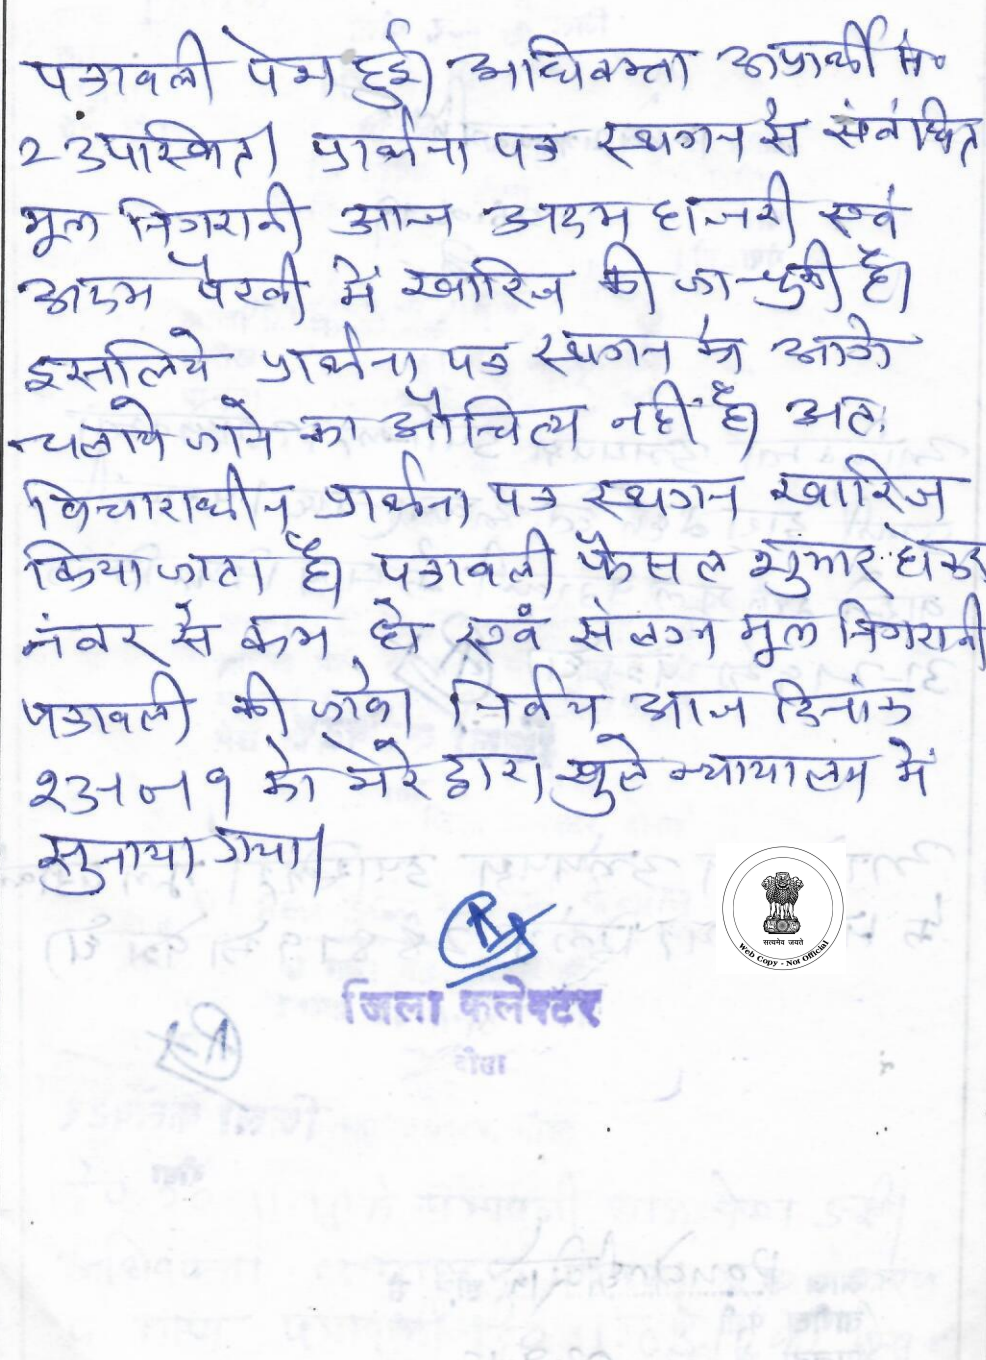 पत्रावली पेश हुई। अधिवक्ता अप्रार्थी सं०
2 उपस्थित। प्रार्थना पत्र स्थगन से संबंधित
मूल निगरानी आज अदम हाजरी एवं
अदम पैरवी में खारिज की जा चुकी है।
इसलिये प्रार्थना पत्र स्थगन को आगे
चलाये जाने का औचित्य नहीं है। अतः
विचाराधीन प्रार्थना पत्र स्थगन खारिज
किया जाता है। पत्रावली फैसल शुमार होकर
नंबर से कम हो एवं संलग्न मूल निगरानी
पत्रावली की जावे। निर्णय आज दिनांक
को मेरे द्वारा खुले न्यायालय में
सुनाया गया।
सत्यमेव जयते
Web Copy - Not Official
जिला कलेक्टर